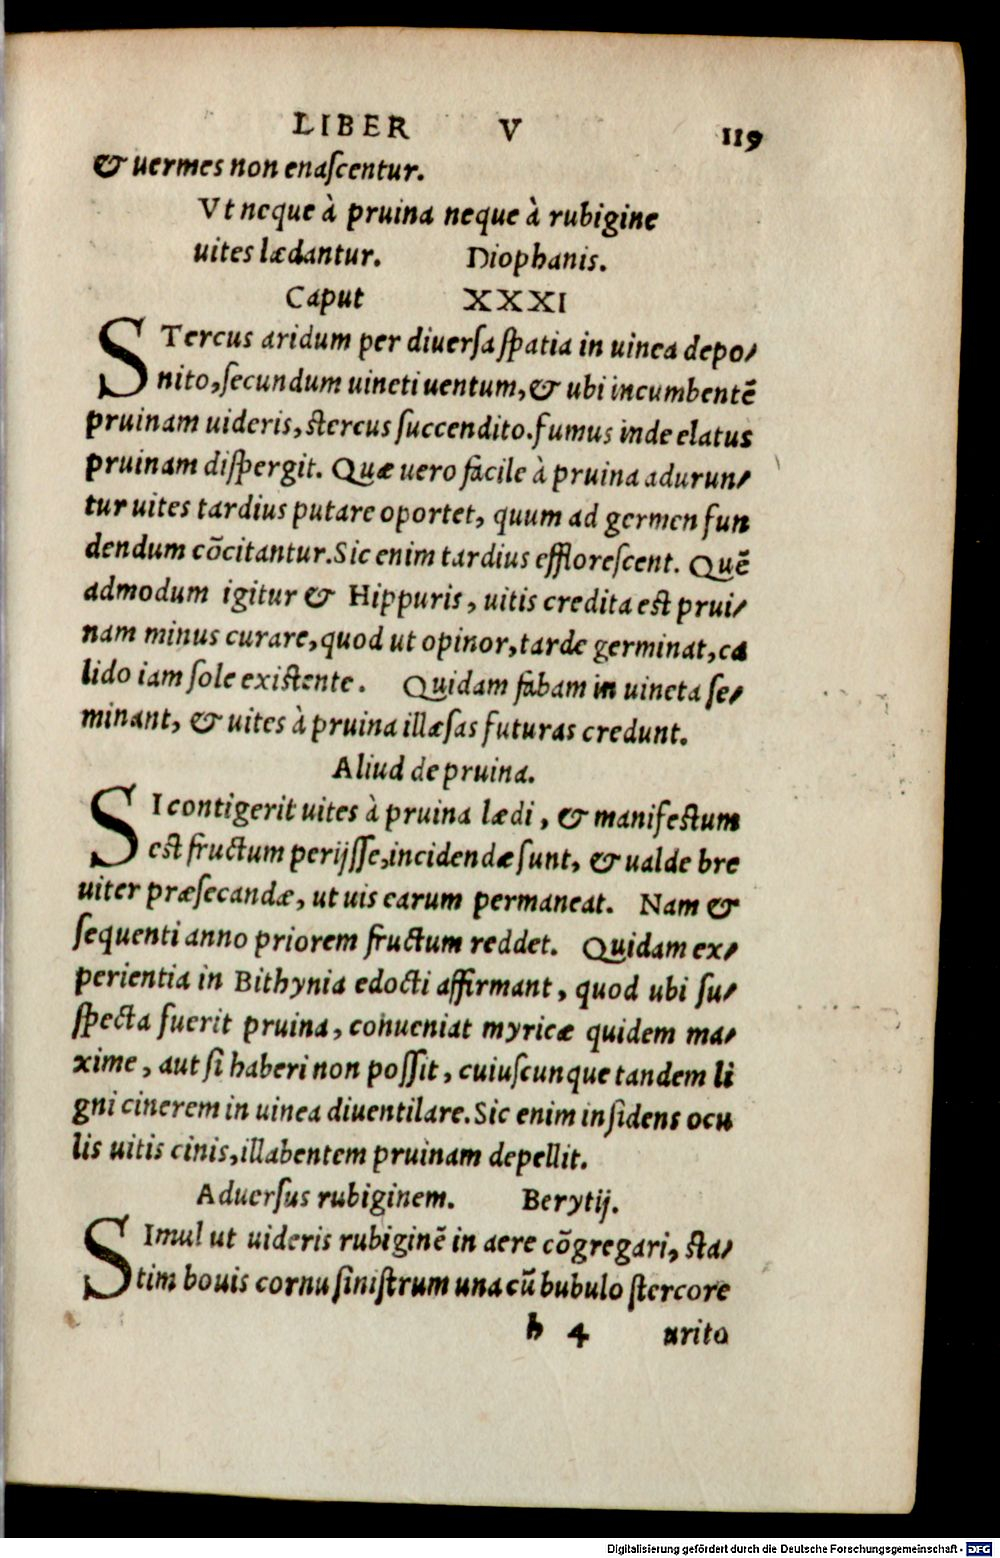 LIBER V 119
& uermes non enaſcentur.
Vt neque à pruina neque à rubigine
uites lædantur. Diophanis.
Caput XXXI
STercus aridum per diuerſa ſpatia in uinea depo/
nito, ſecundum uineti uentum, & ubi incumbentē
pruinam uideris, ſtercus ſuccendito. fumus inde elatus
pruinam diſpergit. Quæ uero facile à pruina adurun/
tur uites tardius putare oportet, quum ad germen fun
dendum cōcitantur. Sic enim tardius effloreſcent. Quē
admodum igitur & Hippuris, uitis credita est prui/
nam minus curare, quod ut opinor, tarde germinat, ca
lido iam ſole exiſtente. Quidam fabam in uineta ſe/
minant, & uites à pruina illæſas futuras credunt.
Aliud de pruina.
SI contigerit uites à pruina lædi, & manifeſtum
eſt fructum perijſſe, incidendæ ſunt, & ualde bre
uiter præſecandæ, ut uis earum permaneat. Nam &
ſequenti anno priorem fructum reddet. Quidam ex/
perientia in Bithynia edocti affirmant, quod ubi ſu/
ſpecta fuerit pruina, conueniat myricæ quidem ma/
xime, aut ſi haberi non poſſit, cuiuſcunque tandem li
gni cinerem in uinea diuentilare. Sic enim inſidens ocu
lis uitis cinis, illabentem pruinam depellit.
Aduerſus rubiginem. Berytij.
SImul ut uideris rubiginē in aere cōgregari, ſta/
tim bouis cornu ſiniſtrum una cū bubulo ſtercore
h 4 urito
Digitalisierung gefördert durch die Deutsche Forschungsgemeinschaft - DFG